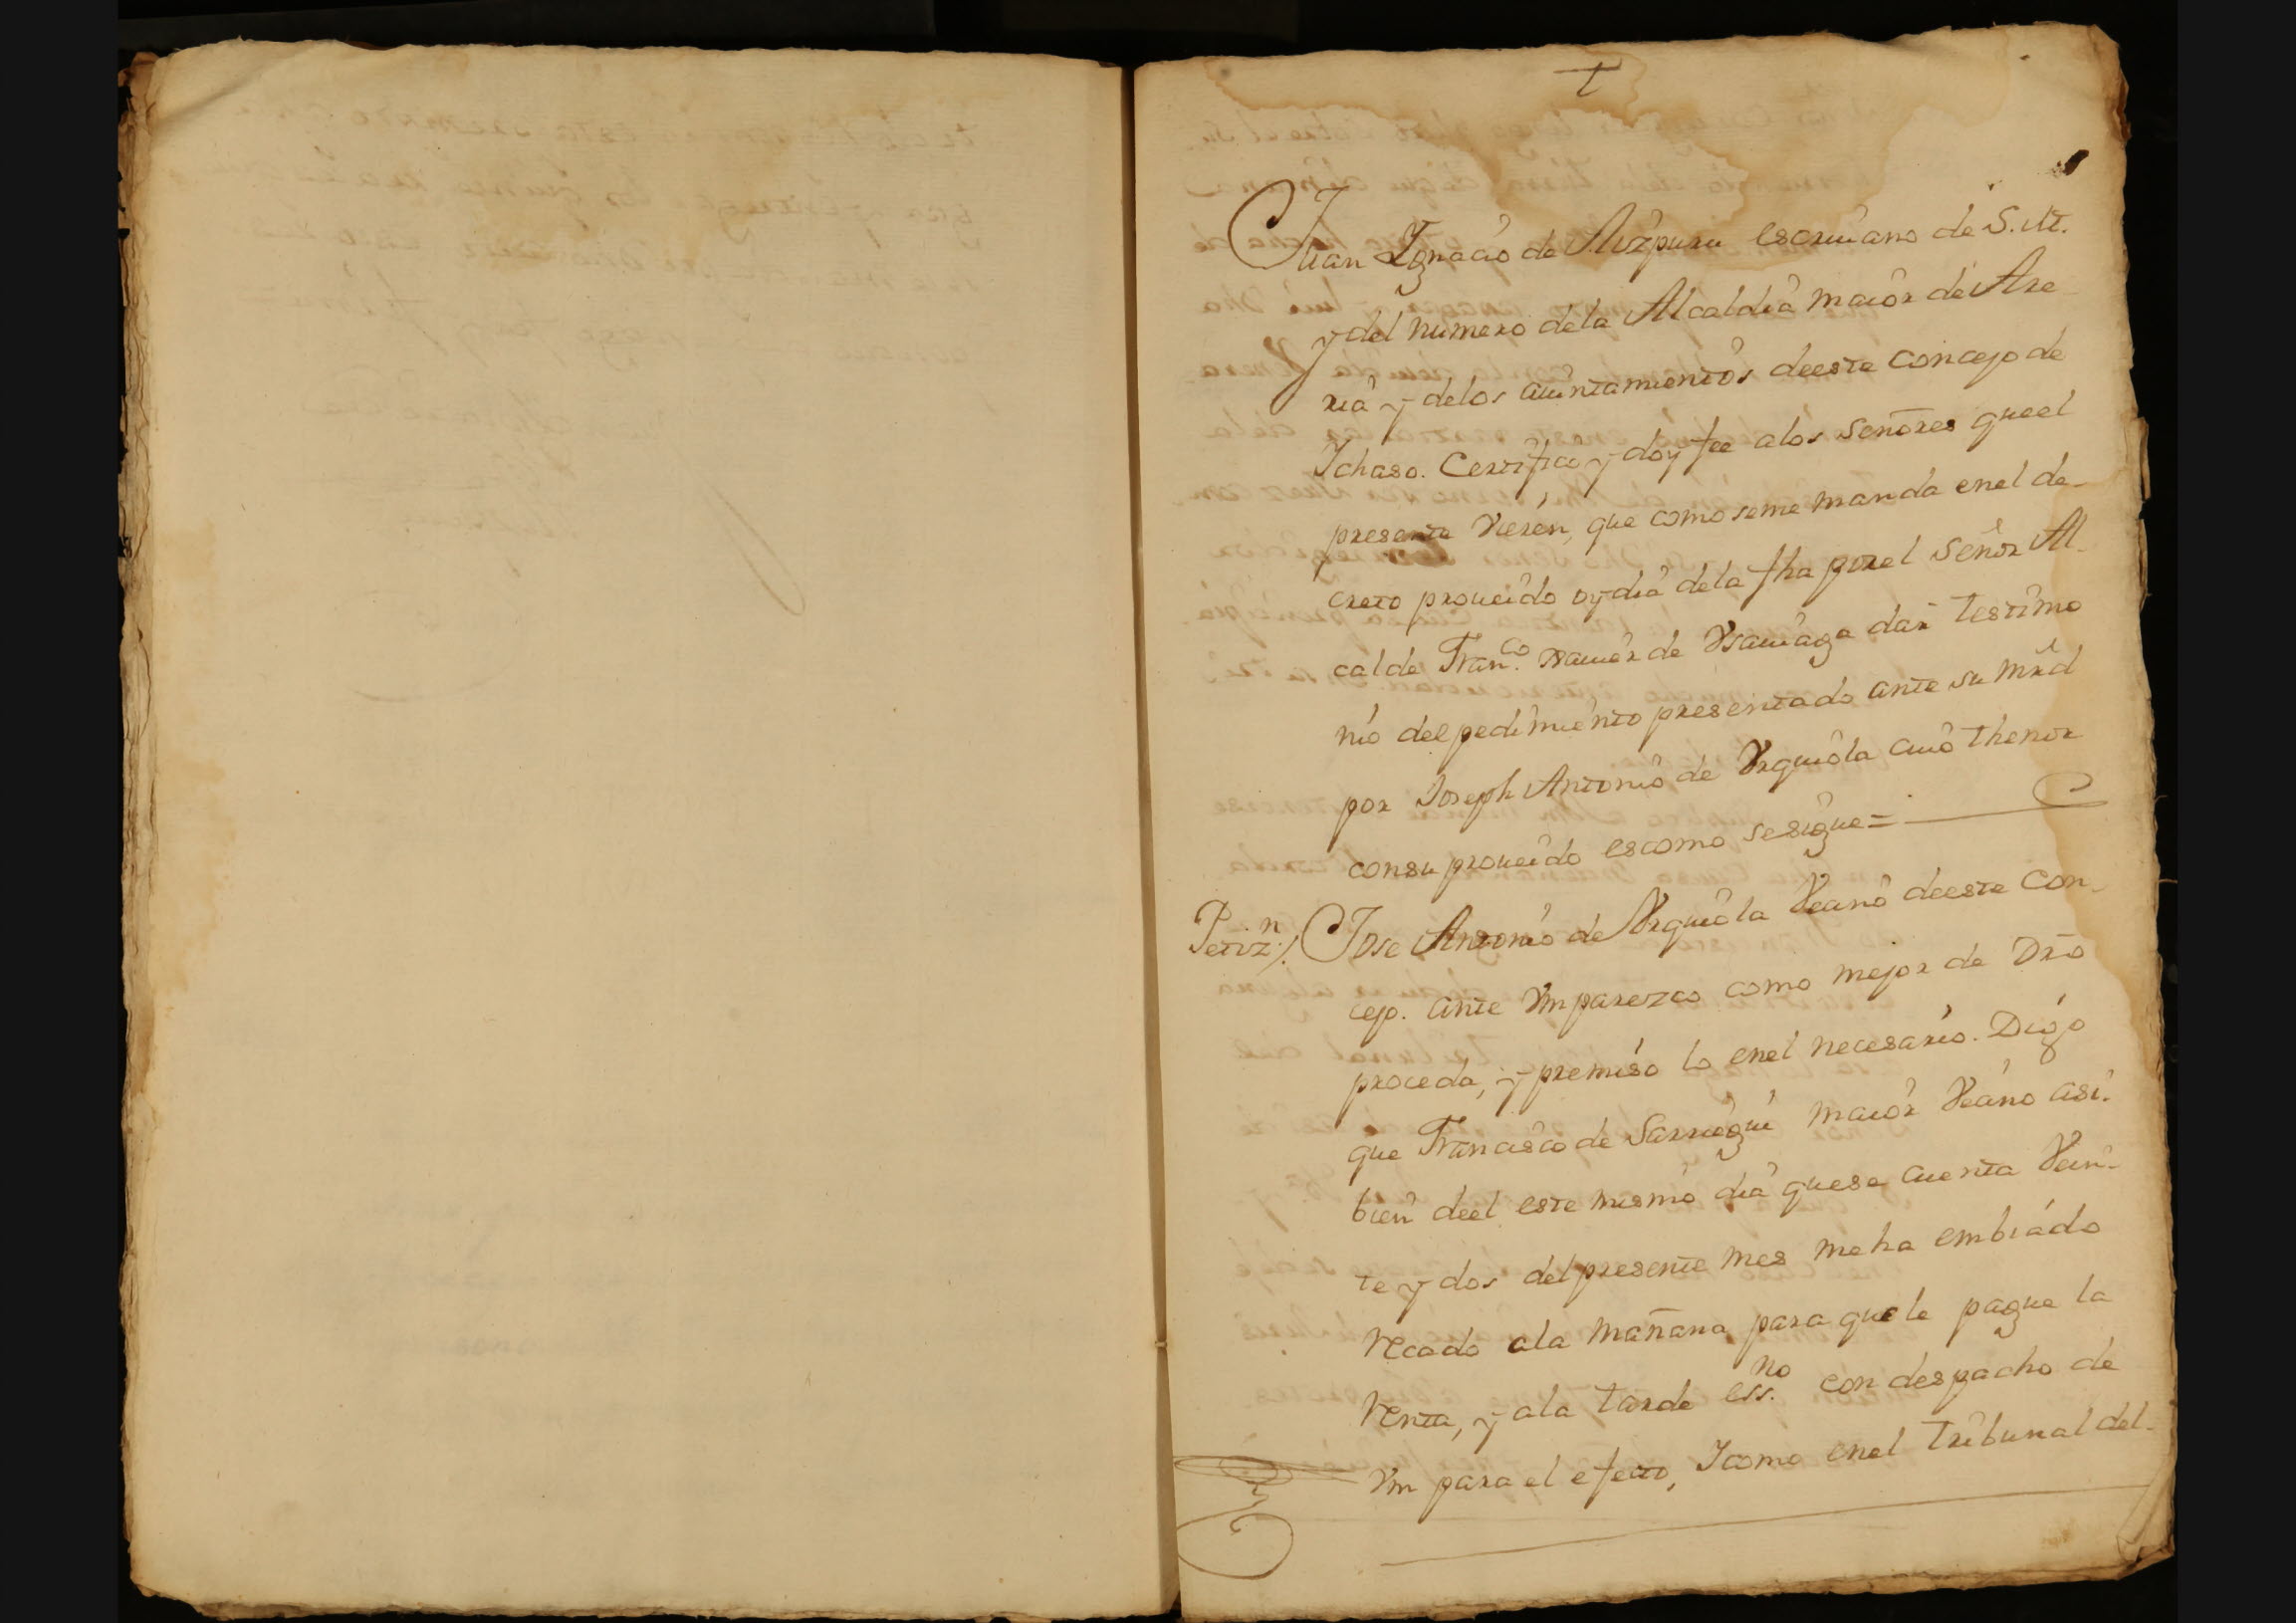 Juan Ygnacio de Aizpuru escriuano de S. M.
y del numero dela Alcaldia maior de Are
ria y delos aiuntamientos deeste concejo de
Ichaso. Certifico y doy fee alos señores queel
presente vieren, que como seme manda enel de-
creto proueido oy dia dela fha porel Señor Al-
calde Fran.co Xauier de Vsauiaga dar testimo
nio del pedimiento presentado ante su mrd
por Joseph Antonio de Vrquiola cuio thenor
consu proueido escomo sesigue =
Petiz.n /. Jose Antonio de Vrquiola Vecino deeste Con-
cejo. ante Vm parezco como mejor de Dro
proceda, y premiso lo enel necesario. Digo
que Francisco de Sarriegui maior Vecino asi-
bien deel este mismo dia quese cuenta Vein-
te y dos del presente mes meha embiado
recado ala mañana para quele pague la
renta, y ala tarde ess.no con despacho de
Vm para el efecto, Y como enel tribunal del-